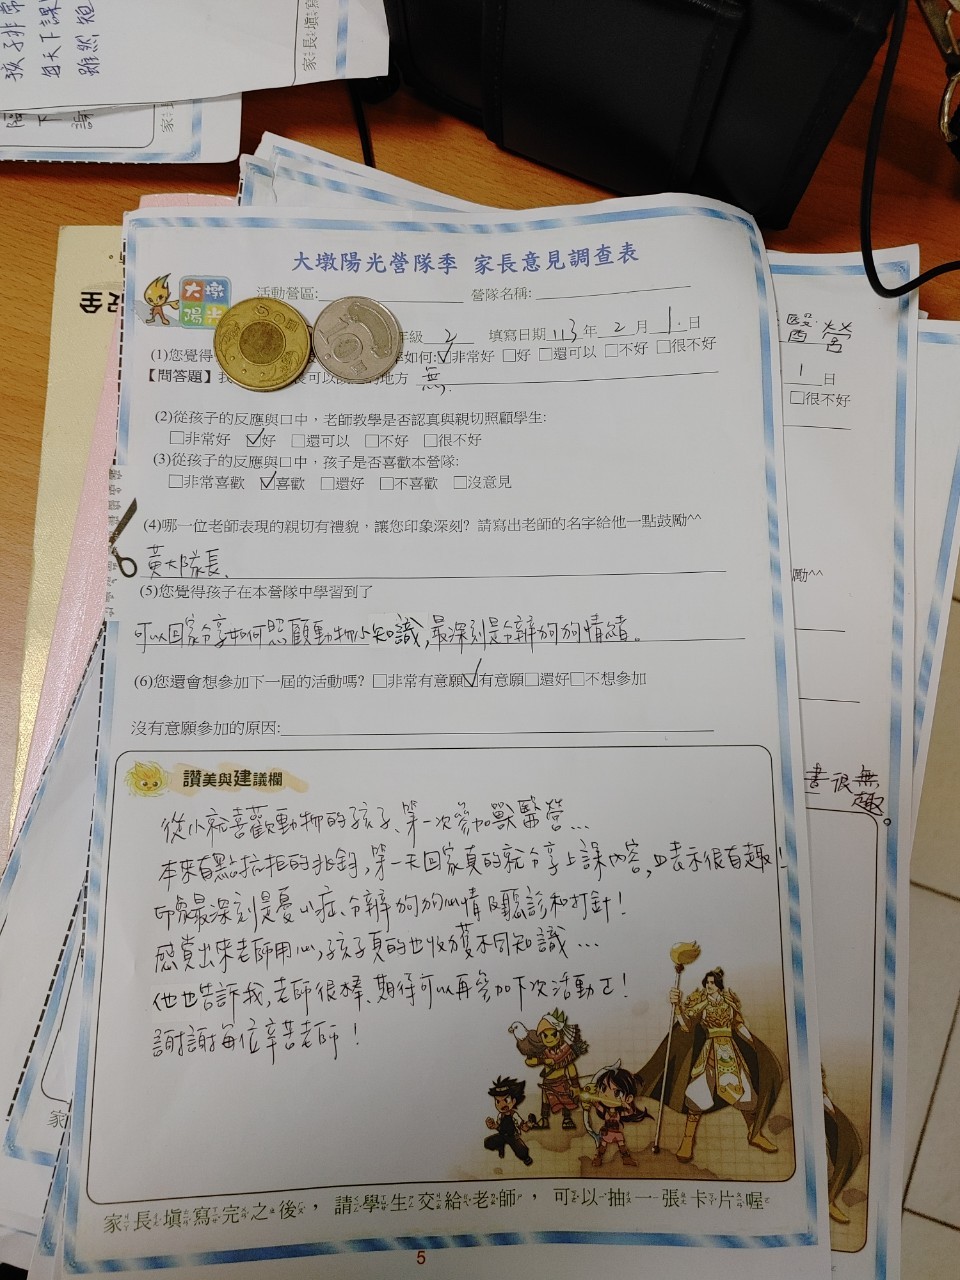 孩子非常
每天下課
雖然短
家長填寫
大墩陽光營隊季 家長意見調查表
大墩
陽光
活動營區: 營隊名稱:
年級 2 填寫日期 113 年 2 月 1 日
(1)您覺得 如何:☑非常好 □好 □還可以 □不好 □很不好
【問答題】 可以 的地方 無
(2)從孩子的反應與口中，老師教學是否認真與親切照顧學生:
□非常好 ☑好 □還可以 □不好 □很不好
(3)從孩子的反應與口中，孩子是否喜歡本營隊:
□非常喜歡 ☑喜歡 □還好 □不喜歡 □沒意見
(4)哪一位老師表現的親切有禮貌，讓您印象深刻? 請寫出老師的名字給他一點鼓勵^^
黃大隊長、
(5)您覺得孩子在本營隊中學習到了
可以回家分享如何照顧動物小知識，最深刻是分辨狗狗情緒。
(6)您還會想參加下一屆的活動嗎? □非常有意願☑有意願□還好□不想參加
沒有意願參加的原因:
讚美與建議欄
從小就喜歡動物的孩子、第一次參加獸醫營...
本來有點抗拒的非鈞，第一天回家真的就分享上課內容，且表示很有趣!
印象最深刻是憂心症、分辨狗狗心情及聽診和打針!
感覺出來老師用心，孩子真的也收穫不同知識...
他也告訴我，老師很棒、期待可以再參加下次活動!
謝謝每位辛苦老師!
家長填寫完之後，請學生交給老師，可以抽一張卡片喔
5
醫營
1 日
□很不好
勵^^
書很無趣。